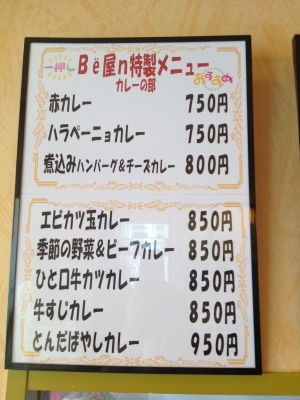 一押し Bë屋n特製メニュー おすすめ
カレーの部
赤カレー 750円
ハラペーニョカレー 750円
煮込みハンバーグ&チーズカレー 800円
エビカツ玉カレー 850円
季節の野菜&ビーフカレー 850円
ひと口牛カツカレー 850円
牛すじカレー 850円
とんだばやしカレー 950円